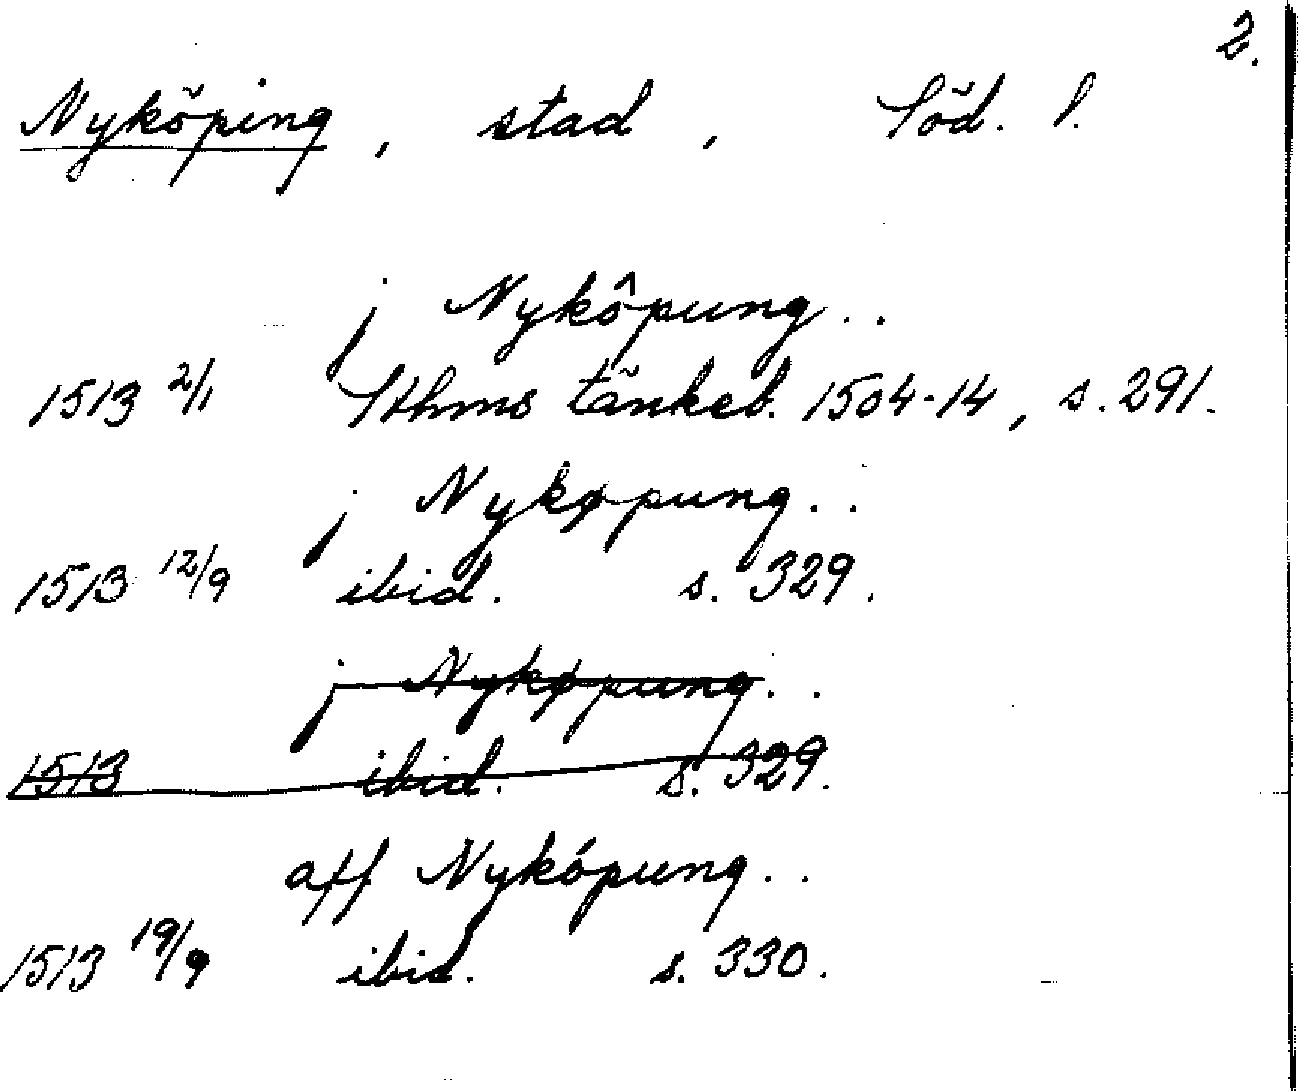 2.
Nyköping, stad, Söd. l.
j Nykôpung..
1513 2/1 Sthms tänkeb. 1504-14, s. 291.
j Nykøpung..
1513 12/9 ibid. s. 329.
j Nykøpung..
1513 ibid. s. 329.
aff Nykópung..
1513 19/9 ibid. s. 330.